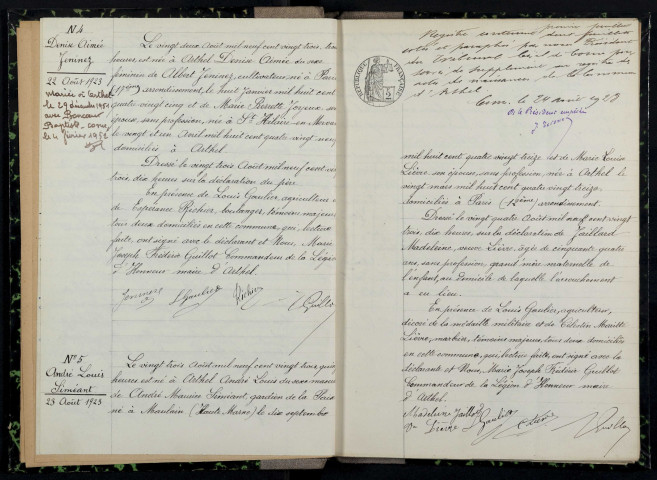 N° 4
Denise Aimée
Jeninez
22 Août 1923
mariée à
le 29 décembre
avec
Baptiste
le 4 février 1952
Le vingt deux Août mil neuf cent vingt trois,
heures, est née à Asthel Denise Aimée du sexe
féminin de Albert Jeninez, cultivateur, né à Paris
arrondissement, le huit Janvier mil huit cent
quatre vingt cinq et de Marie
épouse, sans profession, née à St Hilaire en Morvan
le vingt et un Avril mil huit cent quatre vingt neuf
domiciliés à Asthel.
Dressé le vingt trois Août mil neuf cent vingt
trois, dix heures sur la déclaration du père.
En présence de Louis Gaulier, agriculteur et
de Espérance Richier, boulanger, témoins majeurs,
tous deux domiciliés en cette commune, qui, lecture
faite, ont signé avec le déclarant et Nous, Marie
Joseph Frédéric Guillot Commandeur de la Légion
d'Honneur maire d'Asthel.
Jeninez L Gaulier Richier Guillot
N° 5
André Louis
Siméant
23 Août 1923
Le vingt trois Août mil neuf cent vingt trois,
heures est né à Asthel André Louis du sexe masculin
de André Maurice Siméant, gardien de la
né à Maulain (Haute Marne) le dix septembre
Registre contenant
coté et paraphé par nous Président
du Tribunal
de naissance de la commune
d'Asthel
RÉPUBLIQUE FRANÇAISE
mil huit cent quatre vingt treize et de Marie Louise
Lièvre, son épouse, sans profession, née à Asthel le
vingt mars mil huit cent quatre vingt treize
domiciliés à Paris arrondissement.
Dressé le vingt quatre Août mil neuf cent vingt
trois, dix heures, sur la déclaration de Jaillard
Madeleine, veuve Lièvre, âgée de cinquante quatre
ans, sans profession, grand mère maternelle de
l'enfant, au domicile de laquelle l'accouchement
a eu lieu.
En présence de Louis Gaulier, agriculteur,
décoré de la médaille militaire et de
témoins majeurs, tous deux domiciliés
en cette commune, qui, lecture faite, ont signé avec la
déclarante et Nous, Marie Joseph Frédéric Guillot
Commandeur de la Légion d'Honneur maire
d'Asthel.
Madeleine Jaillard
Ve Lièvre L Gaulier Guillot